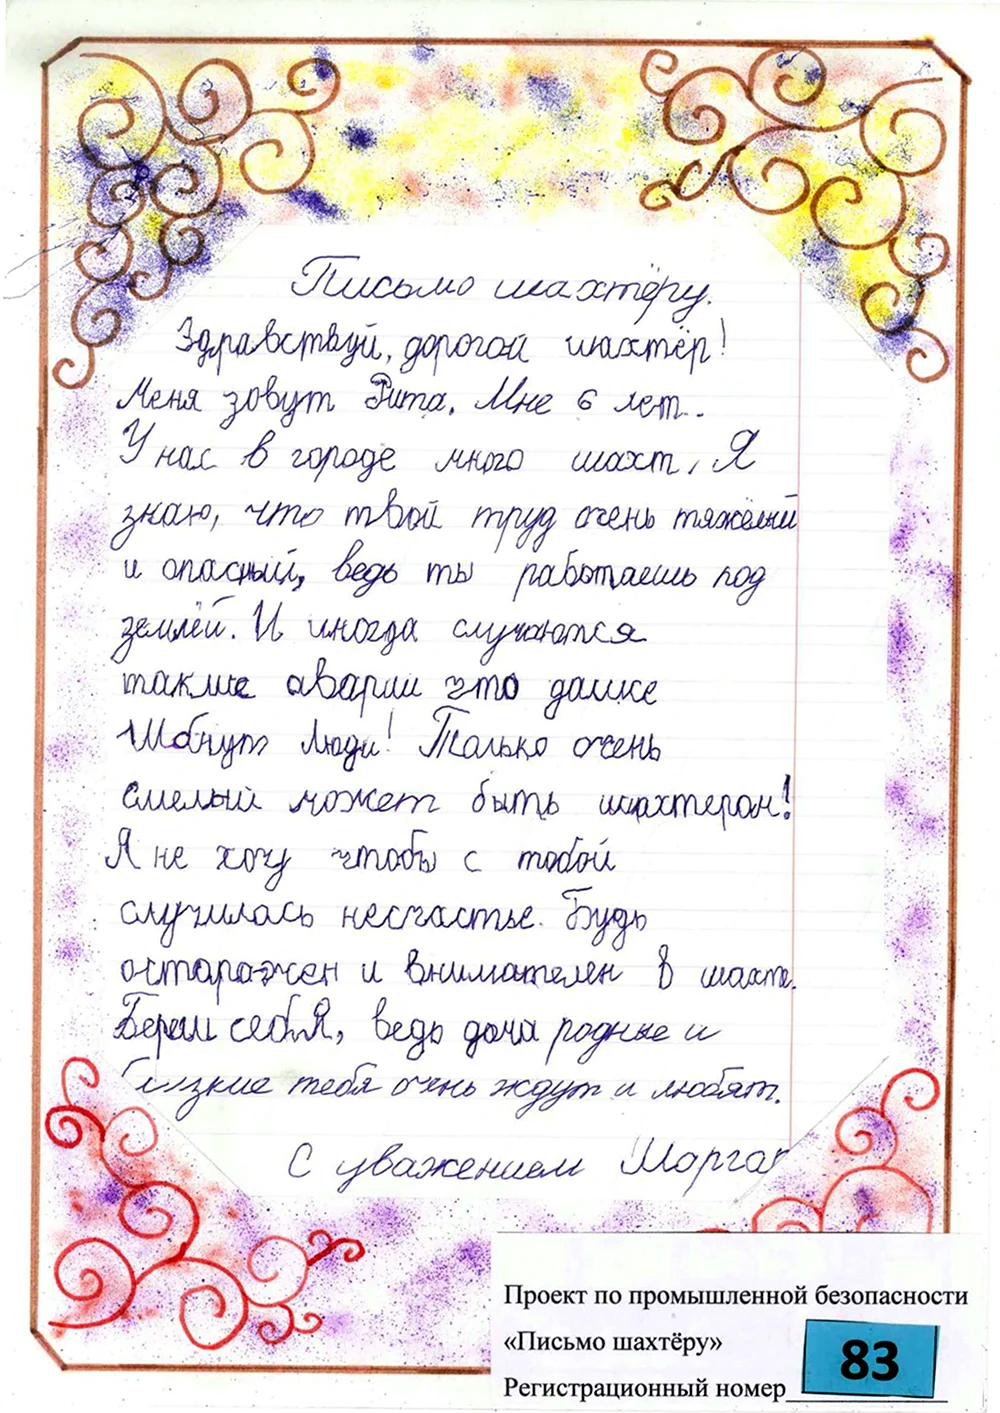 Письмо шахтёру.
Здравствуй, дорогой шахтёр!
Меня зовут Рита. Мне 6 лет.
У нас в городе много шахт, Я
знаю, что твой труд очень тяжёлый
и опасный, ведь ты работаешь под
землёй. И иногда случаются
такие аварии что даже
гибнут люди! Только очень
смелый может быть шахтером!
Я не хочу чтобы с тобой
случилось несчастье. Будь
остарожен и внимателен в шахте.
Береги себя, ведь дома родные и
близкие тебя очень ждут и любят.
С уважением Маргар
Проект по промышленной безопасности
«Письмо шахтёру»
Регистрационный номер 83